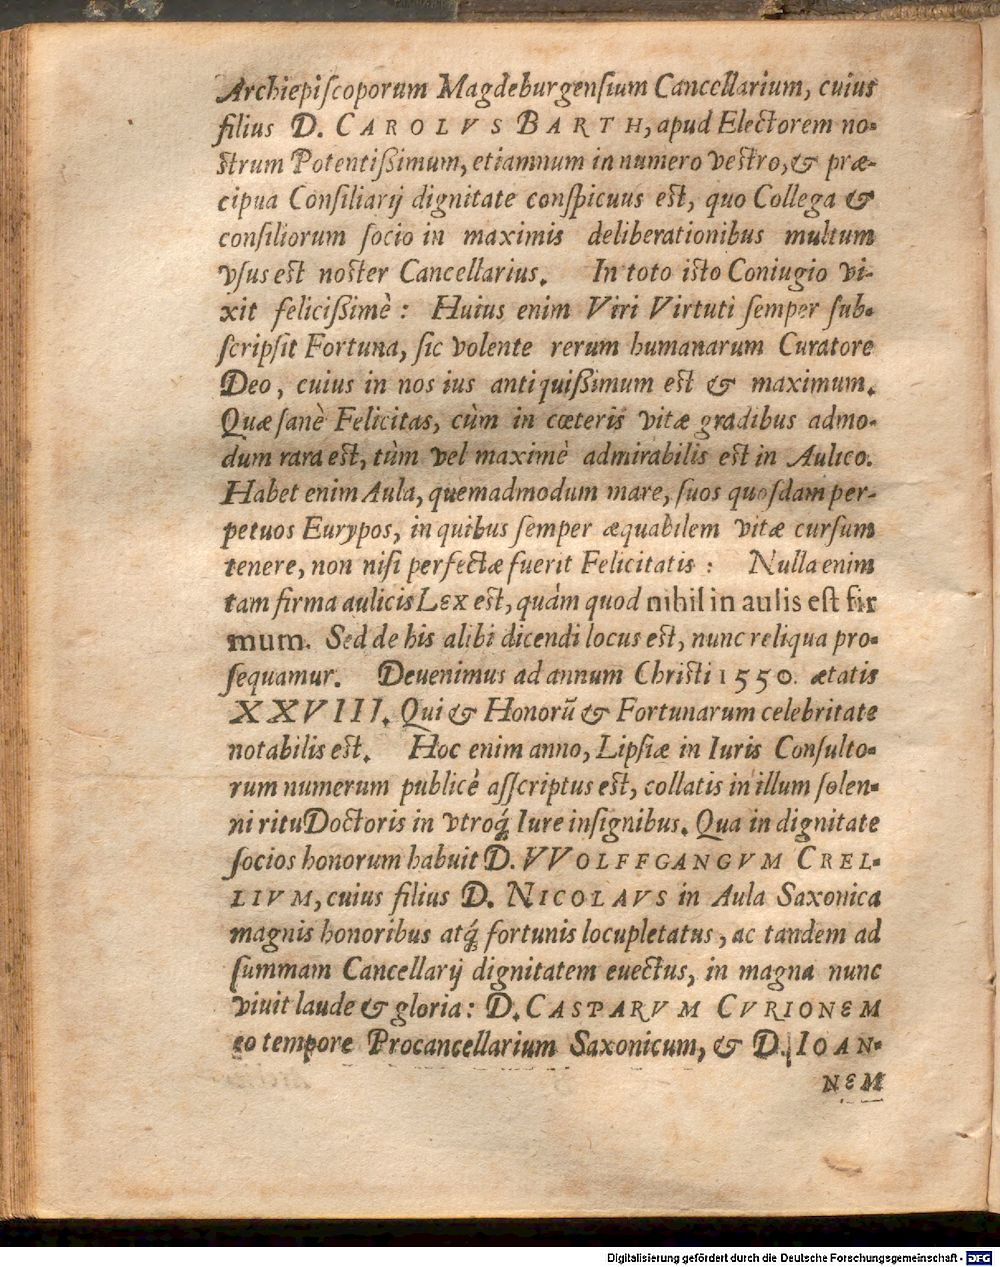 Archiepiſcoporum Magdeburgenſium Cancellarium, cuius
filius D. CAROLVS BARTH, apud Electorem no-
ſtrum Potentiſsimum, etiamnum in numero veſtro, & præ-
cipua Conſiliarij dignitate conſpicuus eſt, quo Collega &
conſiliorum ſocio in maximis deliberationibus multum
vſus eſt noſter Cancellarius. In toto iſto Coniugio vi-
xit feliciſsimè: Huius enim Viri Virtuti ſemper ſub-
ſcripſit Fortuna, ſic volente rerum humanarum Curatore
Deo, cuius in nos ius antiquiſsimum eſt & maximum.
Quæ ſanè Felicitas, cùm in cœteris vitæ gradibus admo-
dum rara eſt, tùm vel maximè admirabilis eſt in Aulico.
Habet enim Aula, quemadmodum mare, ſuos quoſdam per-
petuos Eurypos, in quibus ſemper æquabilem vitæ curſum
tenere, non niſi perfectæ fuerit Felicitatis: Nulla enim
tam firma aulicis LEX eſt, quàm quod nihil in aulis eſt fir
mum. Sed de his alibi dicendi locus eſt, nunc reliqua pro-
ſequamur. Deuenimus ad annum Chriſti 1550. ætatis
XXVIII. Qui & Honorũ & Fortunarum celebritate
notabilis eſt. Hoc enim anno, Lipſiæ in Iuris Conſulto-
rum numerum publicè aſſcriptus eſt, collatis in illum ſolen-
ni ritu Doctoris in vtroq́; Iure inſignibus. Qua in dignitate
ſocios honorum habuit D. VVOLFFGANGVM CREL-
LIVM, cuius filius D. NICOLAVS in Aula Saxonica
magnis honoribus atq́; fortunis locupletatus, ac tandem ad
ſummam Cancellarij dignitatem euectus, in magna nunc
viuit laude & gloria: D. CASPARVM CVRIONEM
eo tempore Procancellarium Saxonicum, & D. IOAN-
NEM
Digitalisierung gefördert durch die Deutsche Forschungsgemeinschaft - DFG